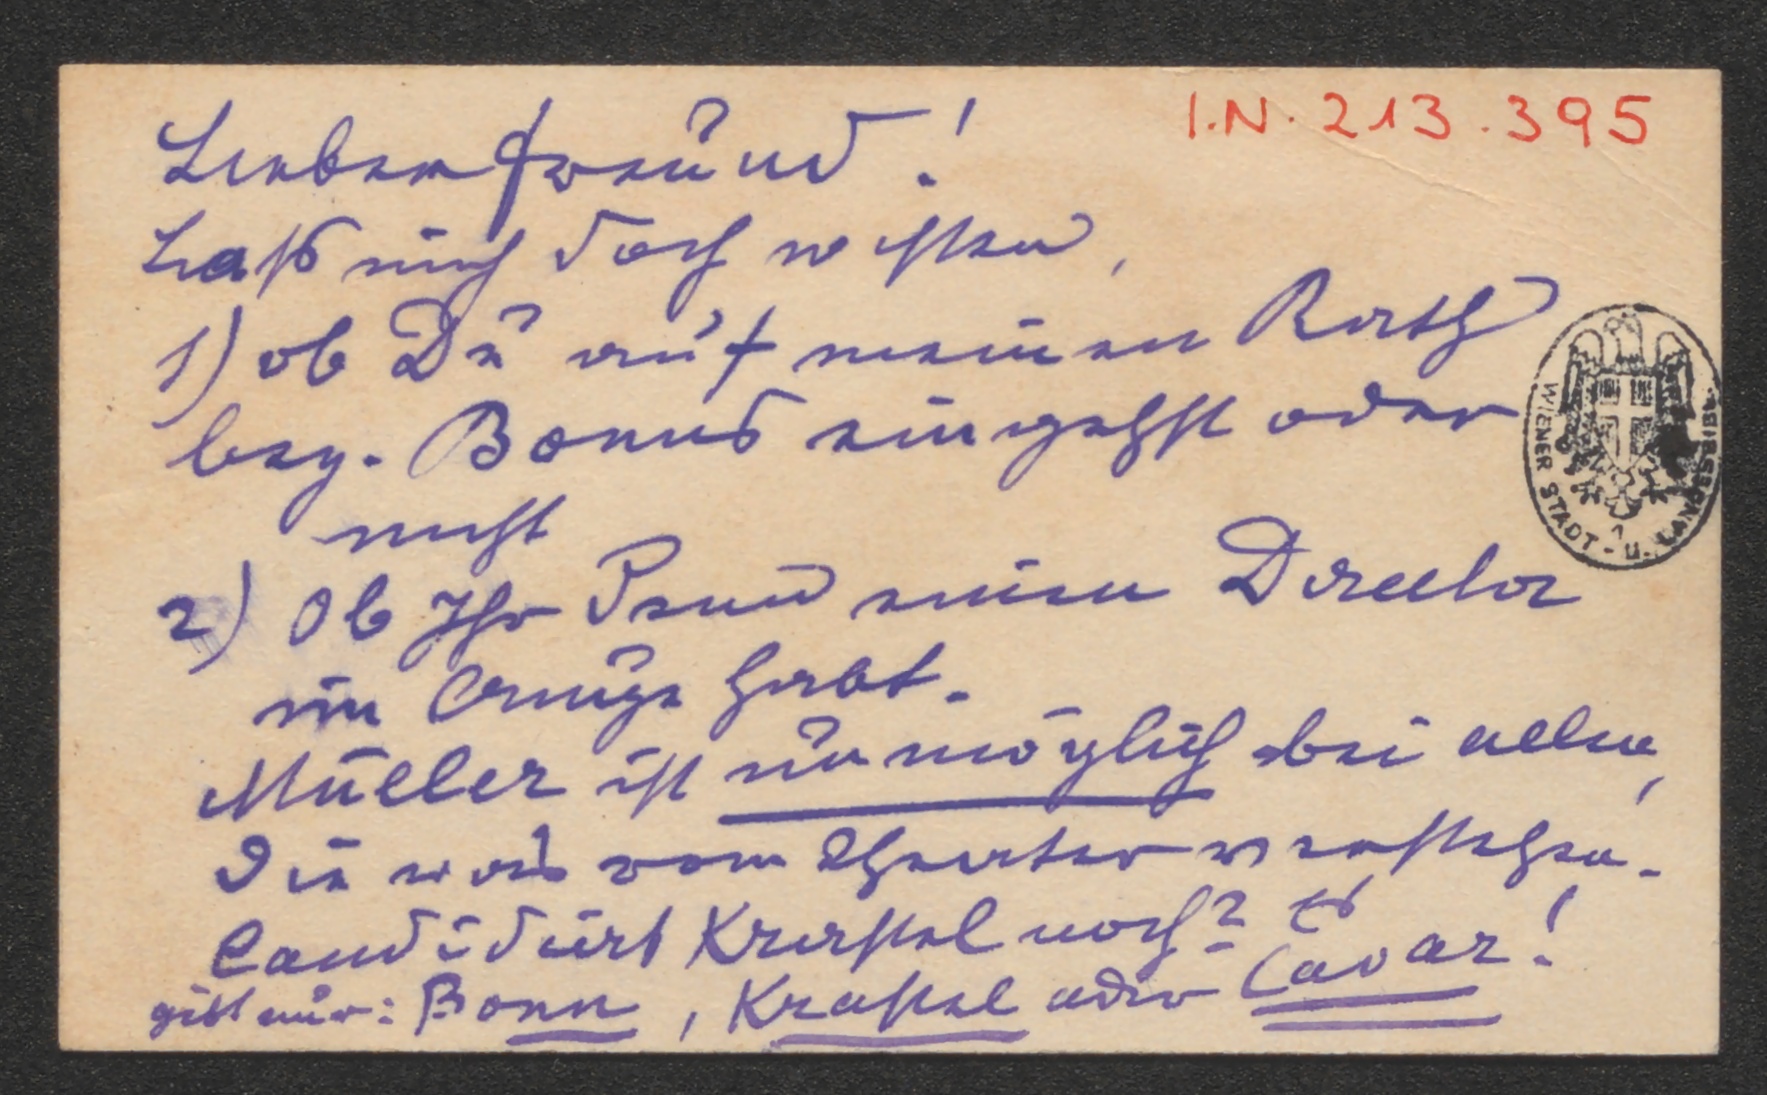 I.N. 213.395
Lieber Freund!
Laß mich doch wissen,
1) ob Du auf meinen Rath
bez. Bonns eingehst oder
nicht
2) Ob Ihr Semd einen Director
im Auge habt.
Müller ist unmöglich bei allen,
die was vom Theater verstehen.
Candidiert Krastel noch? Es
gibt nur: Bonn, Krastel oder Cavar!
WIENER STADT- U. LANDESBIBL.